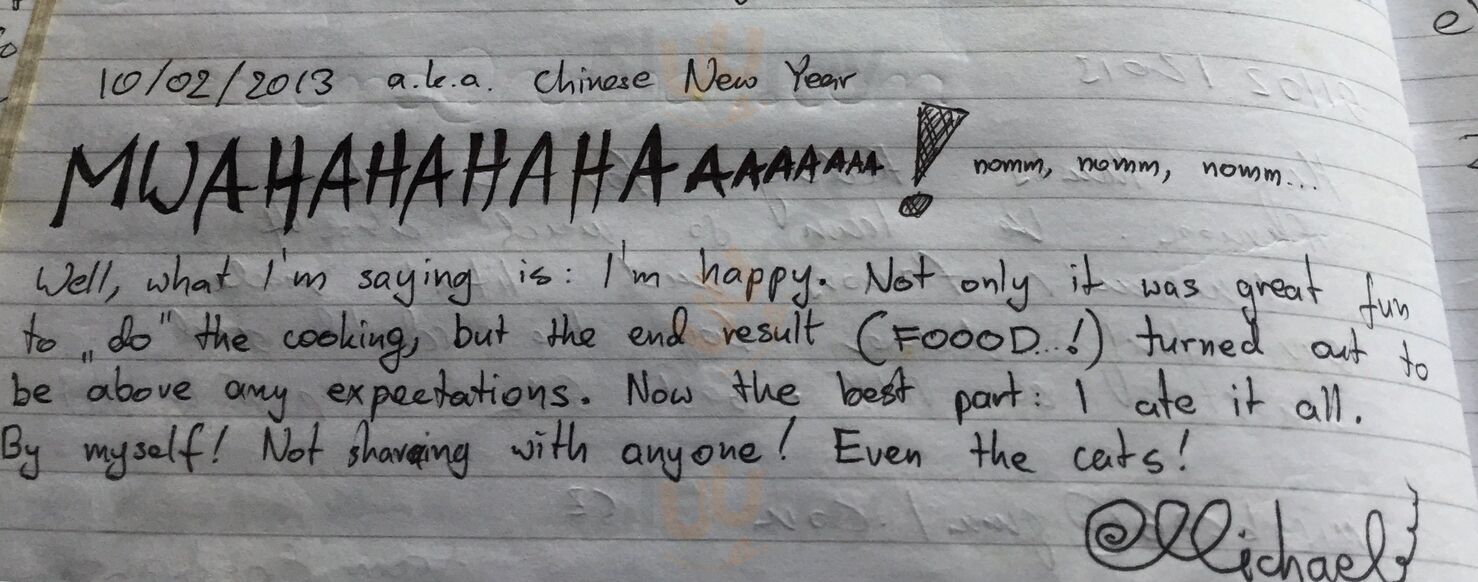 10/02/2013 a.k.a. Chinese New Year
MWAHAHAHAHAAAAAAAA! nomm, nomm, nomm...
Well, what I'm saying is: I'm happy. Not only it was great fun
to „do" the cooking, but the end result (FOOOD...!) turned out to
be above any expectations. Now the best part: I ate it all.
By myself! Not sharing with anyone! Even the cats!
Michael